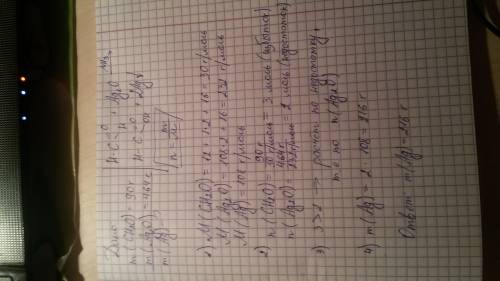 Дано
m(CH₂O) = 90 г
m(Ag₂O) = 464 г
m(Ag)
H-C=O H + Ag₂O NH₃
H-C=O OH + 2Ag↓
n = m/M
1) M(CH₂O) = 12 + 1·2 + 16 = 30 г/моль
M(Ag₂O) = 108·2 + 16 = 232 г/моль
M(Ag) = 108 г/моль
2) n(CH₂O) = 90 г / 30 г/моль = 3 моль (избыток)
n(Ag₂O) = 464 г / 232 г/моль = 2 моль (недостаток)
3) 3>2 → расчет по недостатку,
т.е по n(Ag₂O)
4) m(Ag) = 2 · 108 = 216 г
Ответ: m(Ag) = 216 г